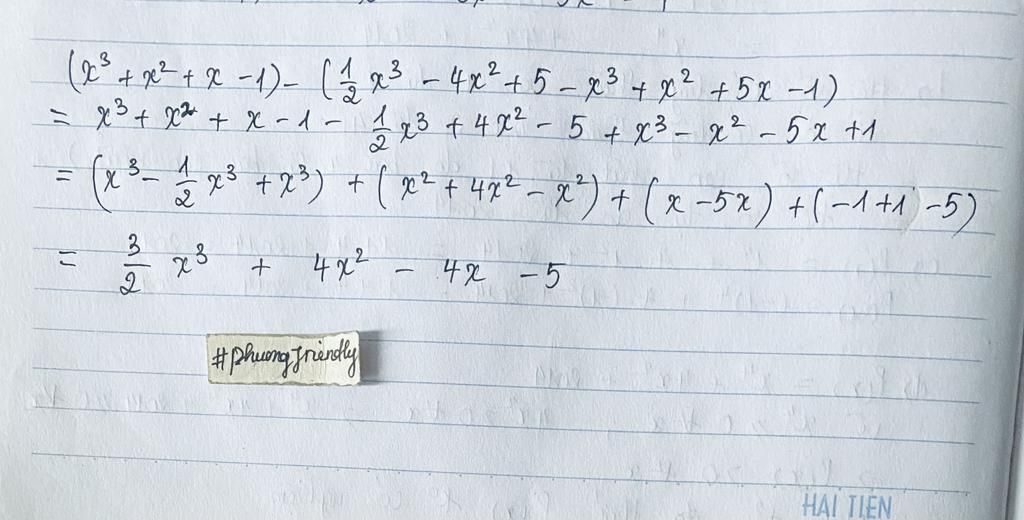 (x³ + x² + x - 1) - (1/2 x³ - 4x² + 5 - x³ + x² + 5x - 1)
= x³ + x² + x - 1 - 1/2 x³ + 4x² - 5 + x³ - x² - 5x + 1
= (x³ - 1/2 x³ + x³) + (x² + 4x² - x²) + (x - 5x) + (-1 + 1 - 5)
= 3/2 x³ + 4x² - 4x - 5
#phuongfriendly
HẢI TIẾN